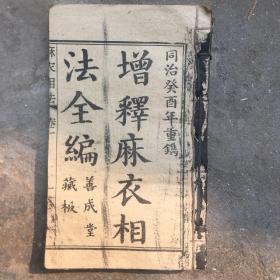 同治癸酉年重鐫
增釋麻衣相
法全編
善成堂
藏板
麻衣相法卷一